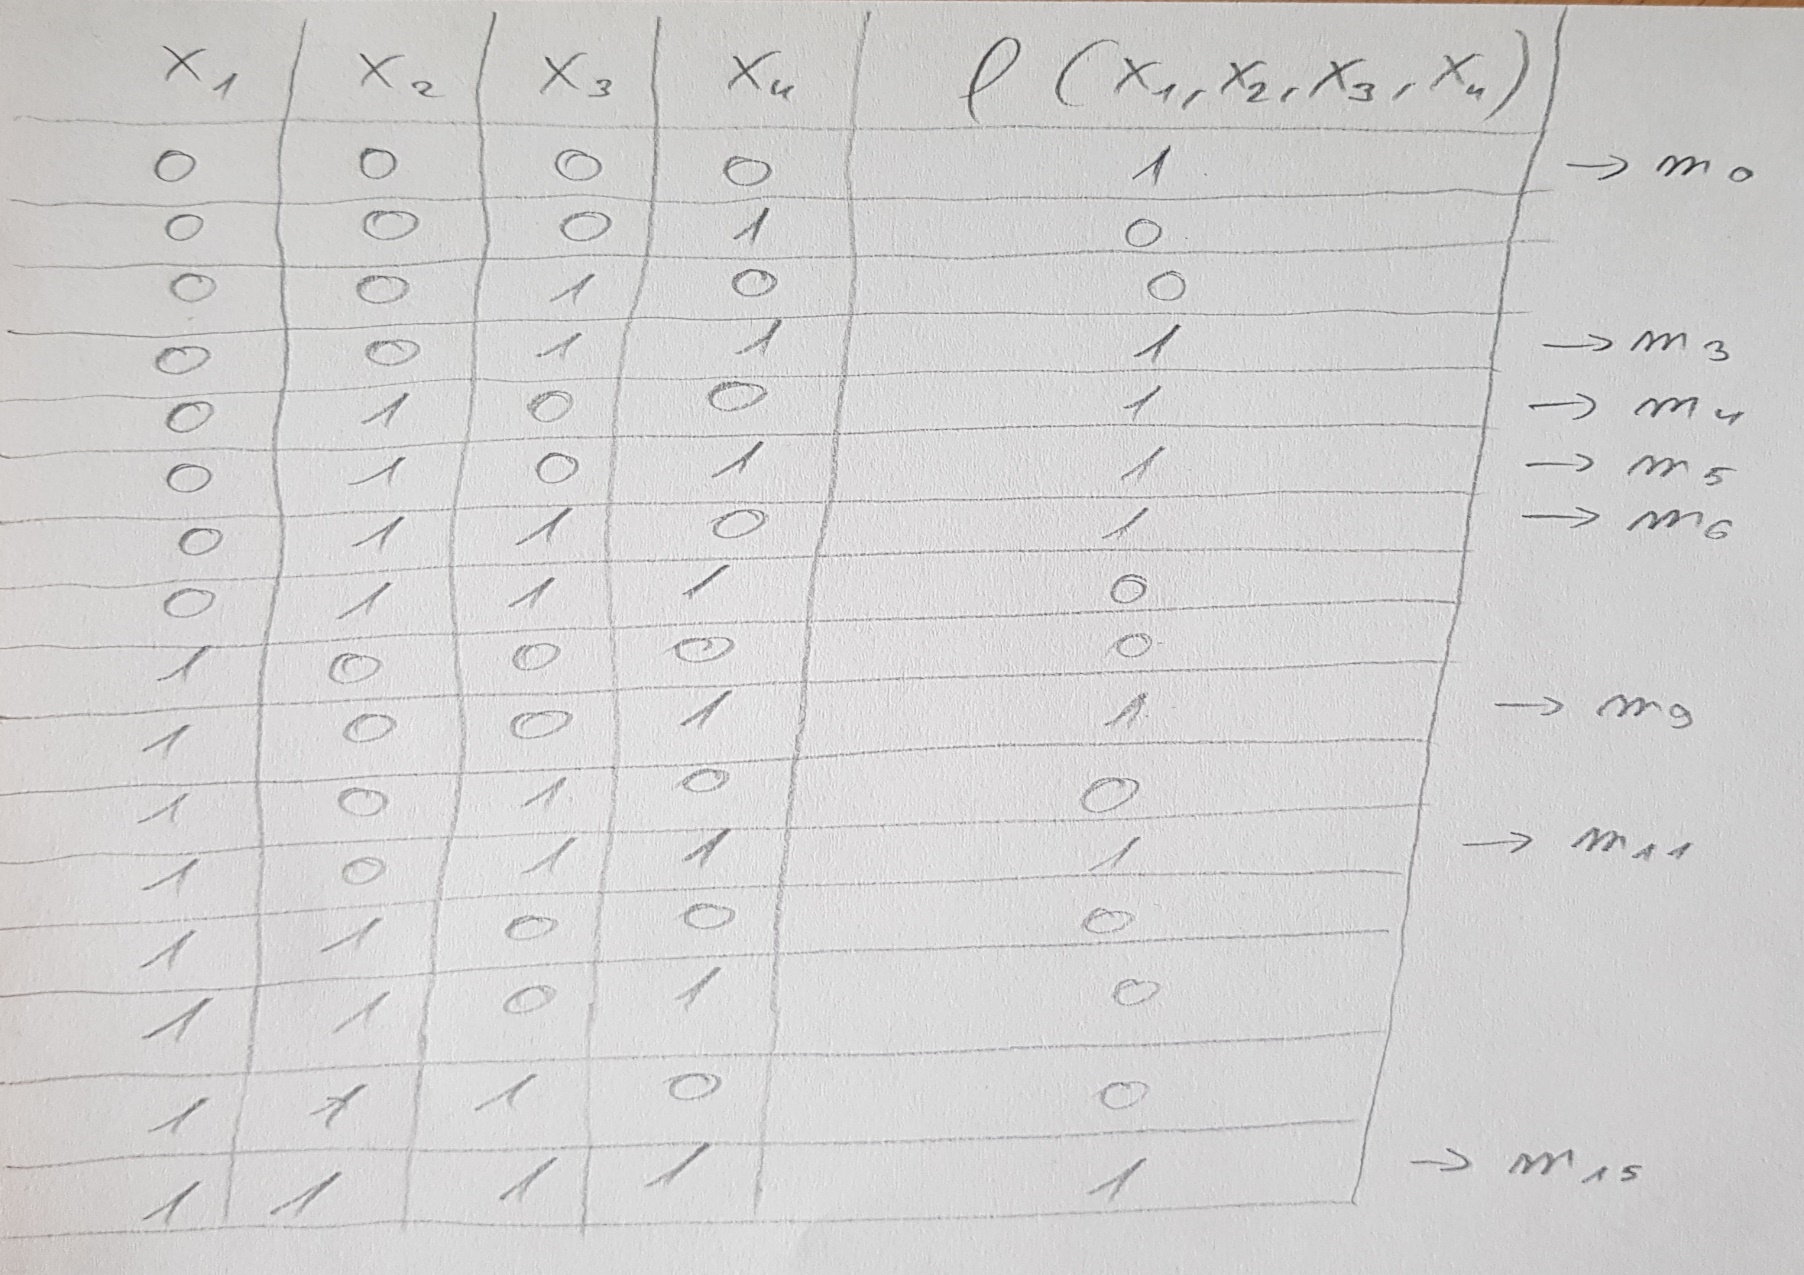 x1 x2 x3 x4 f (x1, x2, x3, x4)
0 0 0 0 1 → m0
0 0 0 1 0
0 0 1 0 0
0 0 1 1 1 → m3
0 1 0 0 1 → m4
0 1 0 1 1 → m5
0 1 1 0 1 → m6
0 1 1 1 0
1 0 0 0 0
1 0 0 1 1 → m9
1 0 1 0 0
1 0 1 1 1 → m11
1 1 0 0 0
1 1 0 1 0
1 1 1 0 0
1 1 1 1 1 → m15